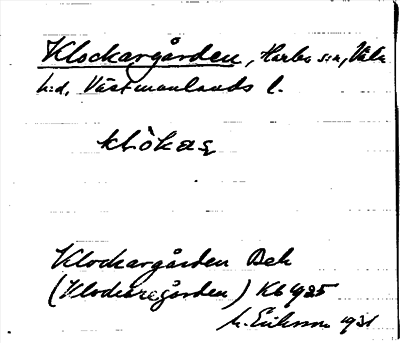 Klockargården, Harbo s:n, Våla
h:d, Västmanlands l.
klòkaṣ
Klockargården Bek
(Klockaregården) Kb 1925
M. Eriksson 1931